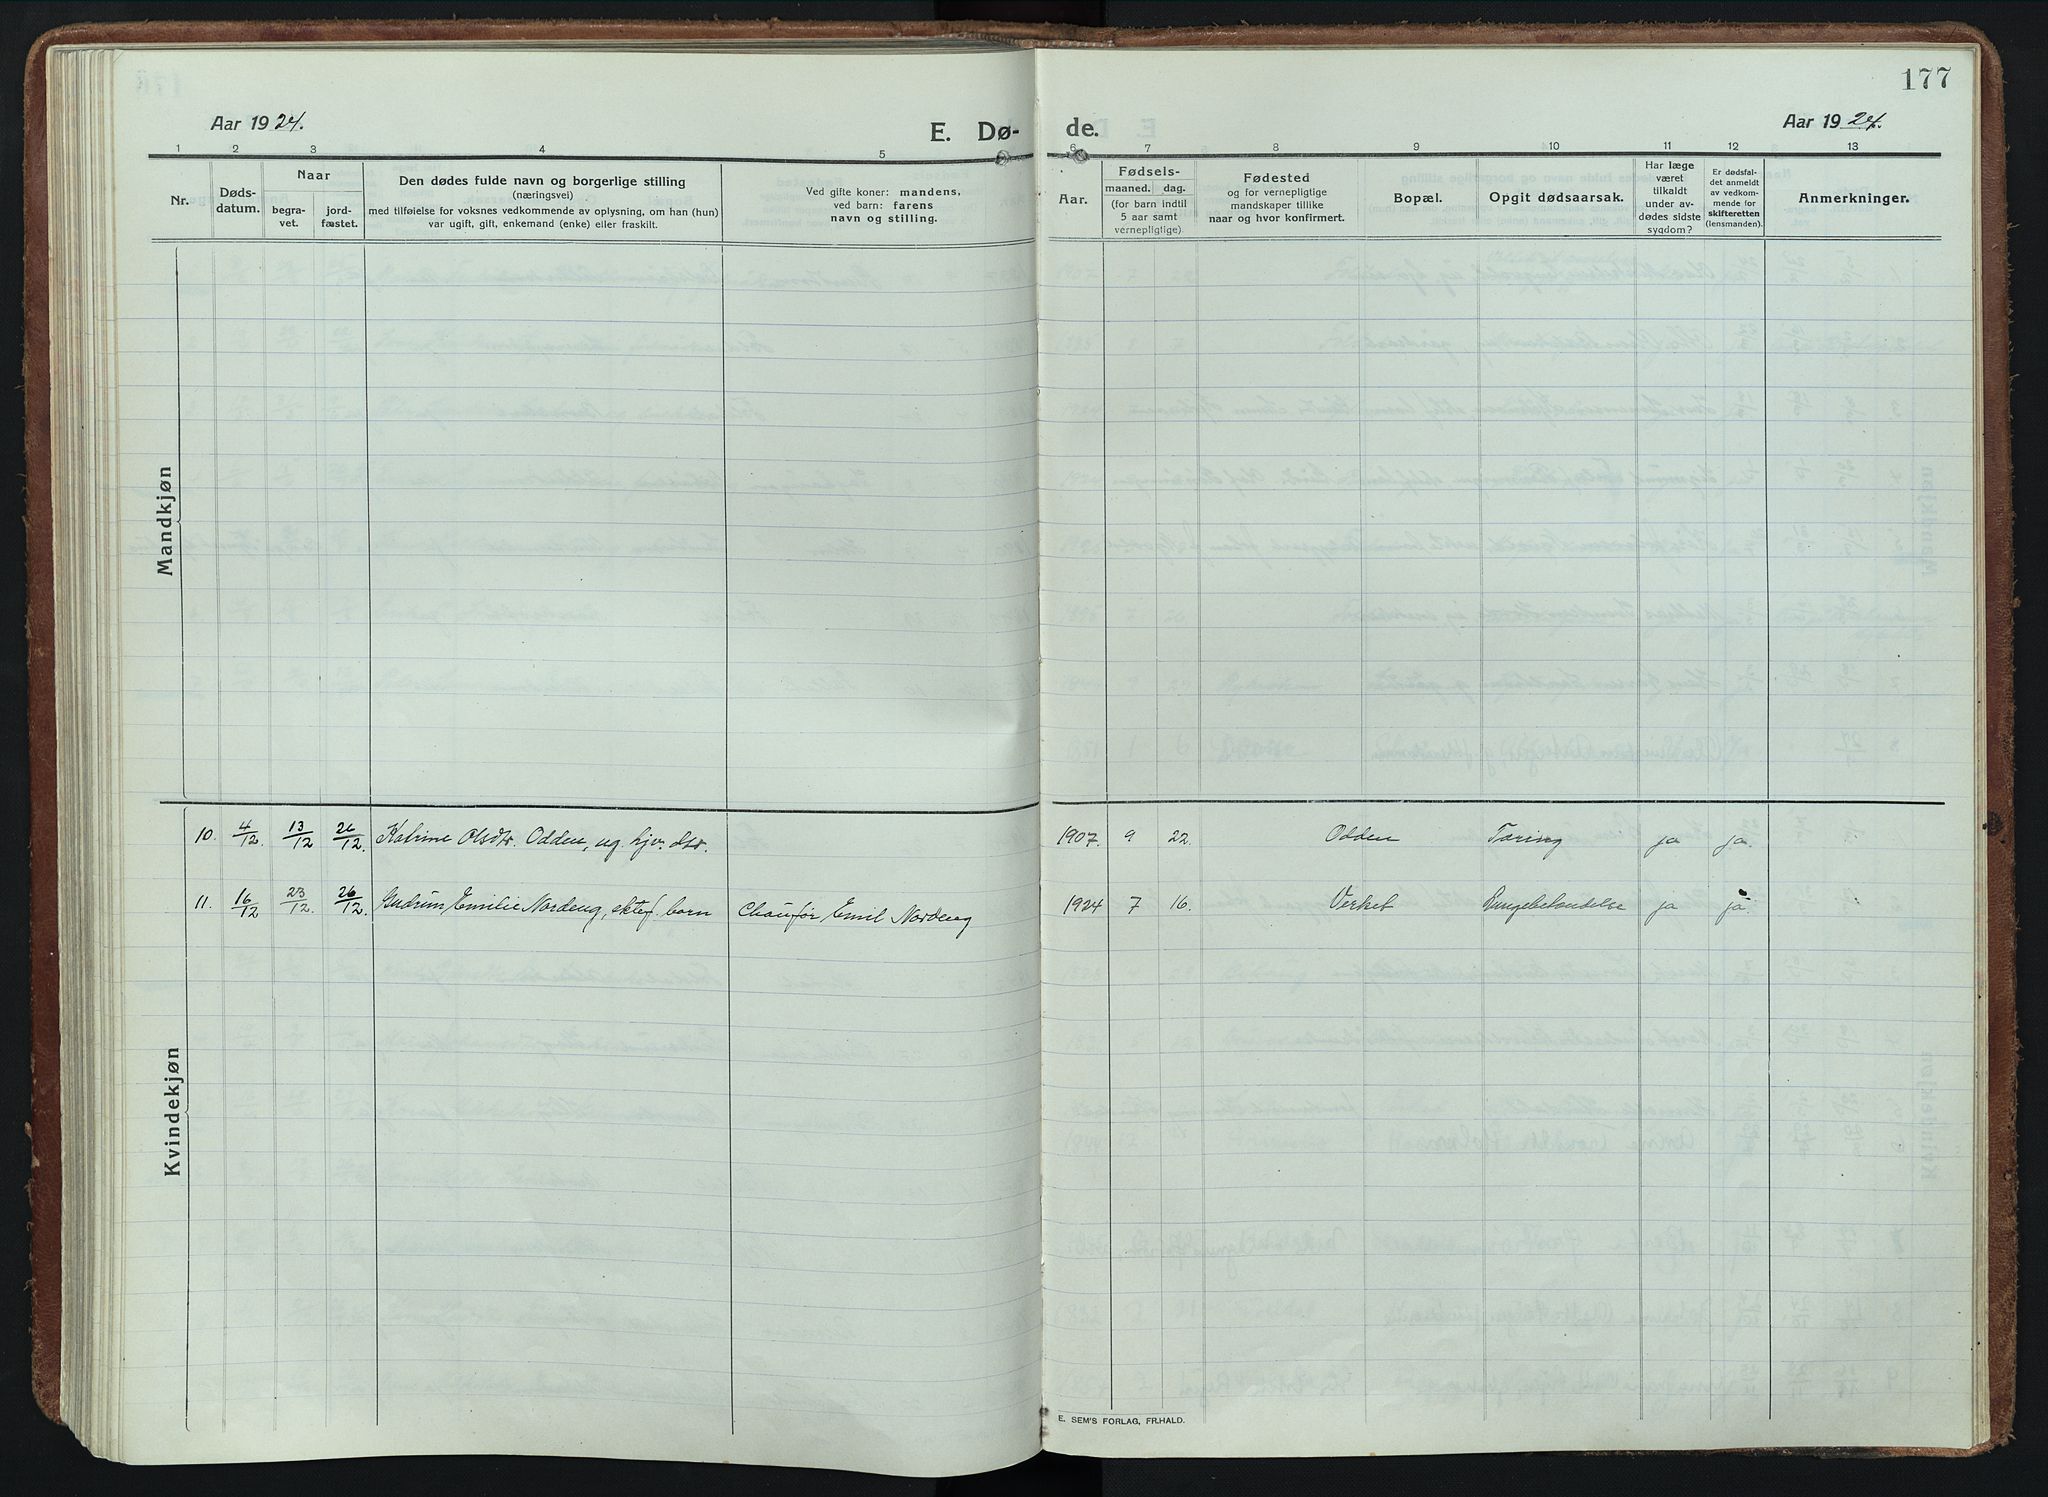 177
Aar 1924.
E. Dø-
de.
Aar 1924.
1 2 3 4 5 6 7 8 9 10 11 12 13
Nr.
Døds-
datum.
Naar
begra-
vet.
jord-
fæstet.
Den dødes fulde navn og borgerlige stilling
(næringsvei)
med tilføielse for voksnes vedkommende av oplysning, om han (hun)
var ugift, gift, enkemand (enke) eller fraskilt.
Ved gifte koner: mandens,
ved barn: farens
navn og stilling.
Aar.
Fødsels-
maaned. dag.
(for barn indtil
5 aar samt
vernepligtige)
Fødested
og for vernepligtige
mandskaper tillike
naar og hvor konfirmert.
Bopæl.
Opgit dødsaarsak.
Har læge
været
tilkaldt
under av-
dødes sidste
sygdom?
Er dødsfal-
det anmeldt
av vedkom-
mende for
skifteretten
(lensmanden).
Anmerkninger.
Mandkjøn
10. 4/12 13/12 26/12 Katrine Olsdtr. Odden, ug. hjv. dtr. 1907. 9 22. Odden Tæring ja ja.
11. 16/12 23/12. 26/12. Gudrun Emilie Nordeng, ektef. barn Chaufør Emil Nordeng 1924 7 16. Verket Lungebetændelse ja ja.
Kvindekjøn
E. SEM'S FORLAG, FR.HALD.